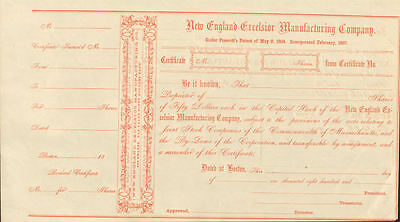 No.
Certificate Transf'd No.
To
From
No. Shares
Dated
Boston, 18
Received Certificate
No. for Shares
NEW ENGLAND EXCELSIOR MANUFACTURING
New England Excelsior Manufacturing Company.
Under Patent of May 9, Incorporated February, 1867.
Certificate No. Shares from Certificate No.
Be it known, That
Proprietor of Shares
of Fifty Dollars each in the Capital Stock of the New England Ex-
celsior Manufacturing Company, subject to the provisions of the acts relating to
Joint Stock Companies of the Commonwealth of Massachusetts, and
the By-Laws of the Corporation, and transferable by assignment, and
a surrender of this Certificate.
Dated at Boston, This day
of one thousand eight hundred and
President.
Treasurer.
Approved,